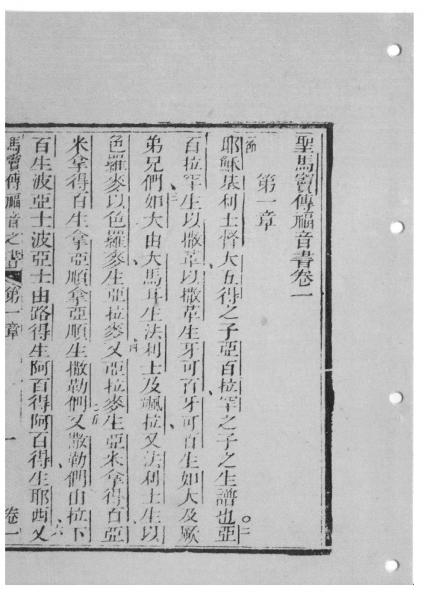 聖馬竇傳福音書卷一
第一章
節耶穌基利士督大五得之子亞百拉罕之子之生譜也。二亞
百拉罕生以撒革以撒革生牙可百牙可百生如大及厥
弟兄們如大由大馬耳生法利士及颯拉又法利士生以
色羅麥以色羅麥生亞拉麥又亞拉麥生亞米拿得百亞
米拿得百生拿亞順拿亞順生撒勒們又撒勒們由拉下
百生波亞士波亞士由路得生阿百得阿百得生耶西又
馬竇傳福音之書 第一章 一 卷一